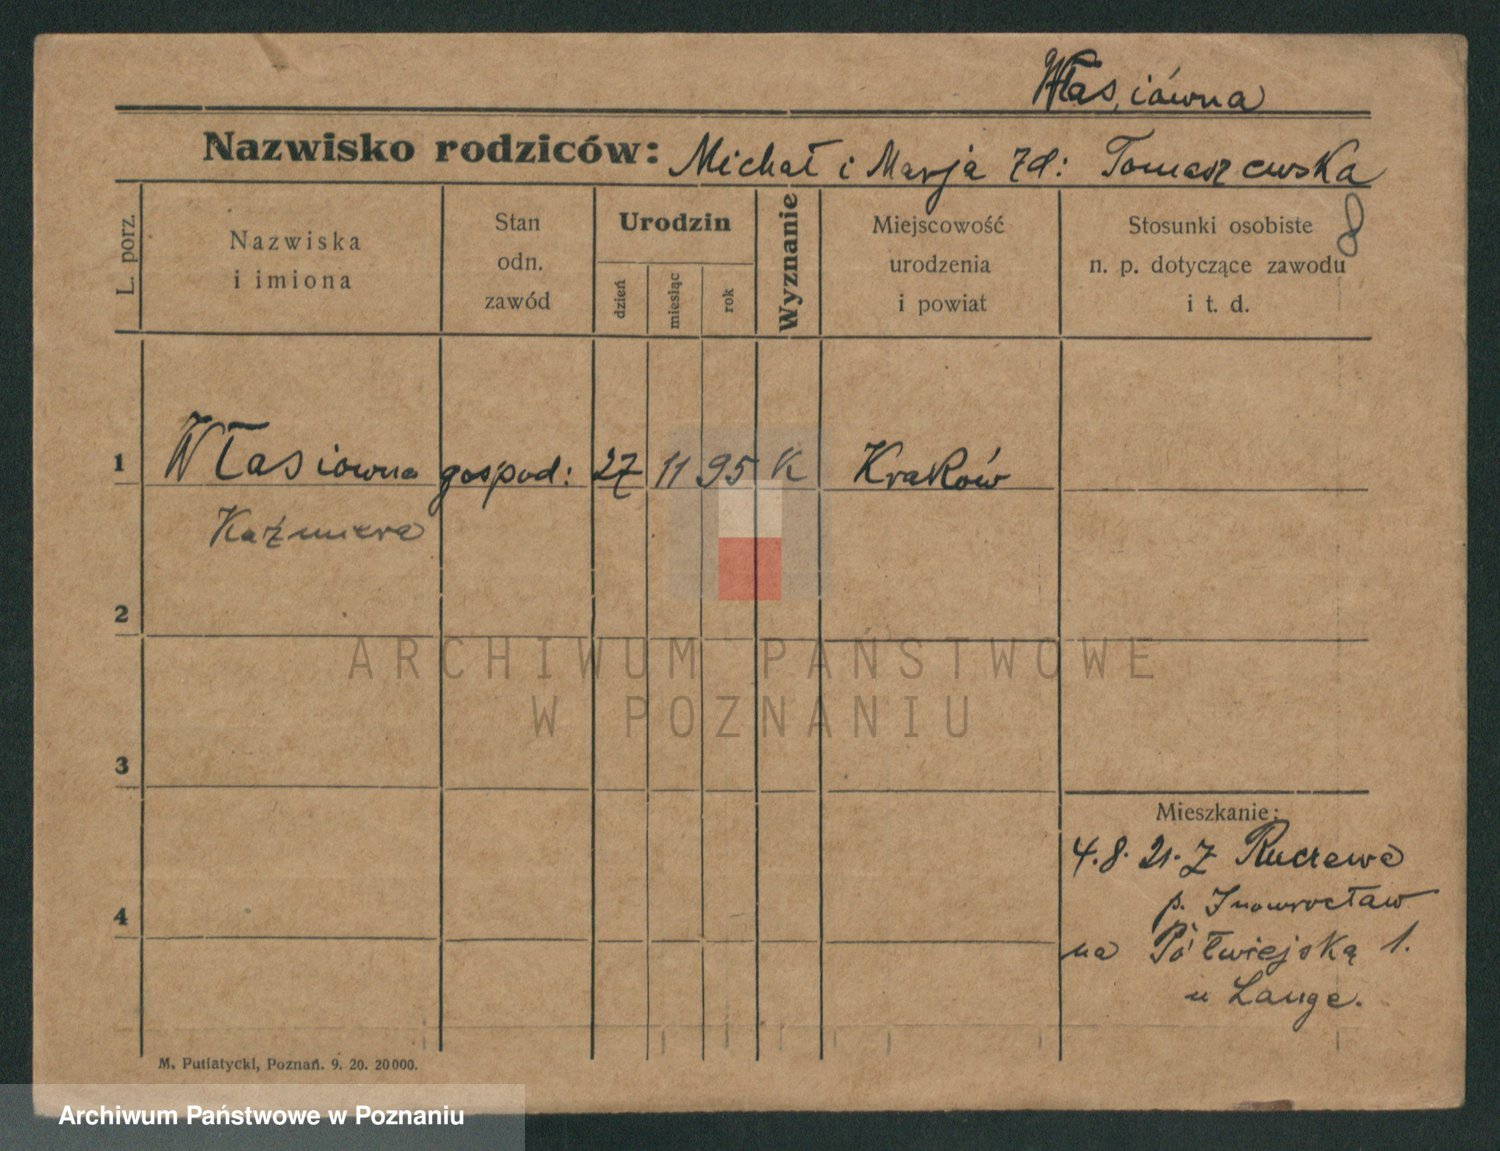 Własiówna
Nazwisko rodziców: Michał i Marja zd: Tomaszewska
8
L. porz.
Nazwiska
i imiona
Stan
odn.
zawód
Urodzin
dzień
miesiąc
rok
Wyznanie
Miejscowość
urodzenia
i powiat
Stosunki osobiste
n. p. dotyczące zawodu
i t. d.
1 Własiowna gospod: 27 11 95 K Kraków
Kaźmiera
2
ARCHIWUM PAŃSTWOWE
W POZNANIU
3
Mieszkanie:
4.8.21. z Ruczewa
p. Inowrocław
4
na Półwiejską 1.
u Lange.
M. Putiatycki, Poznań. 9. 20. 20000.
Archiwum Państwowe w Poznaniu